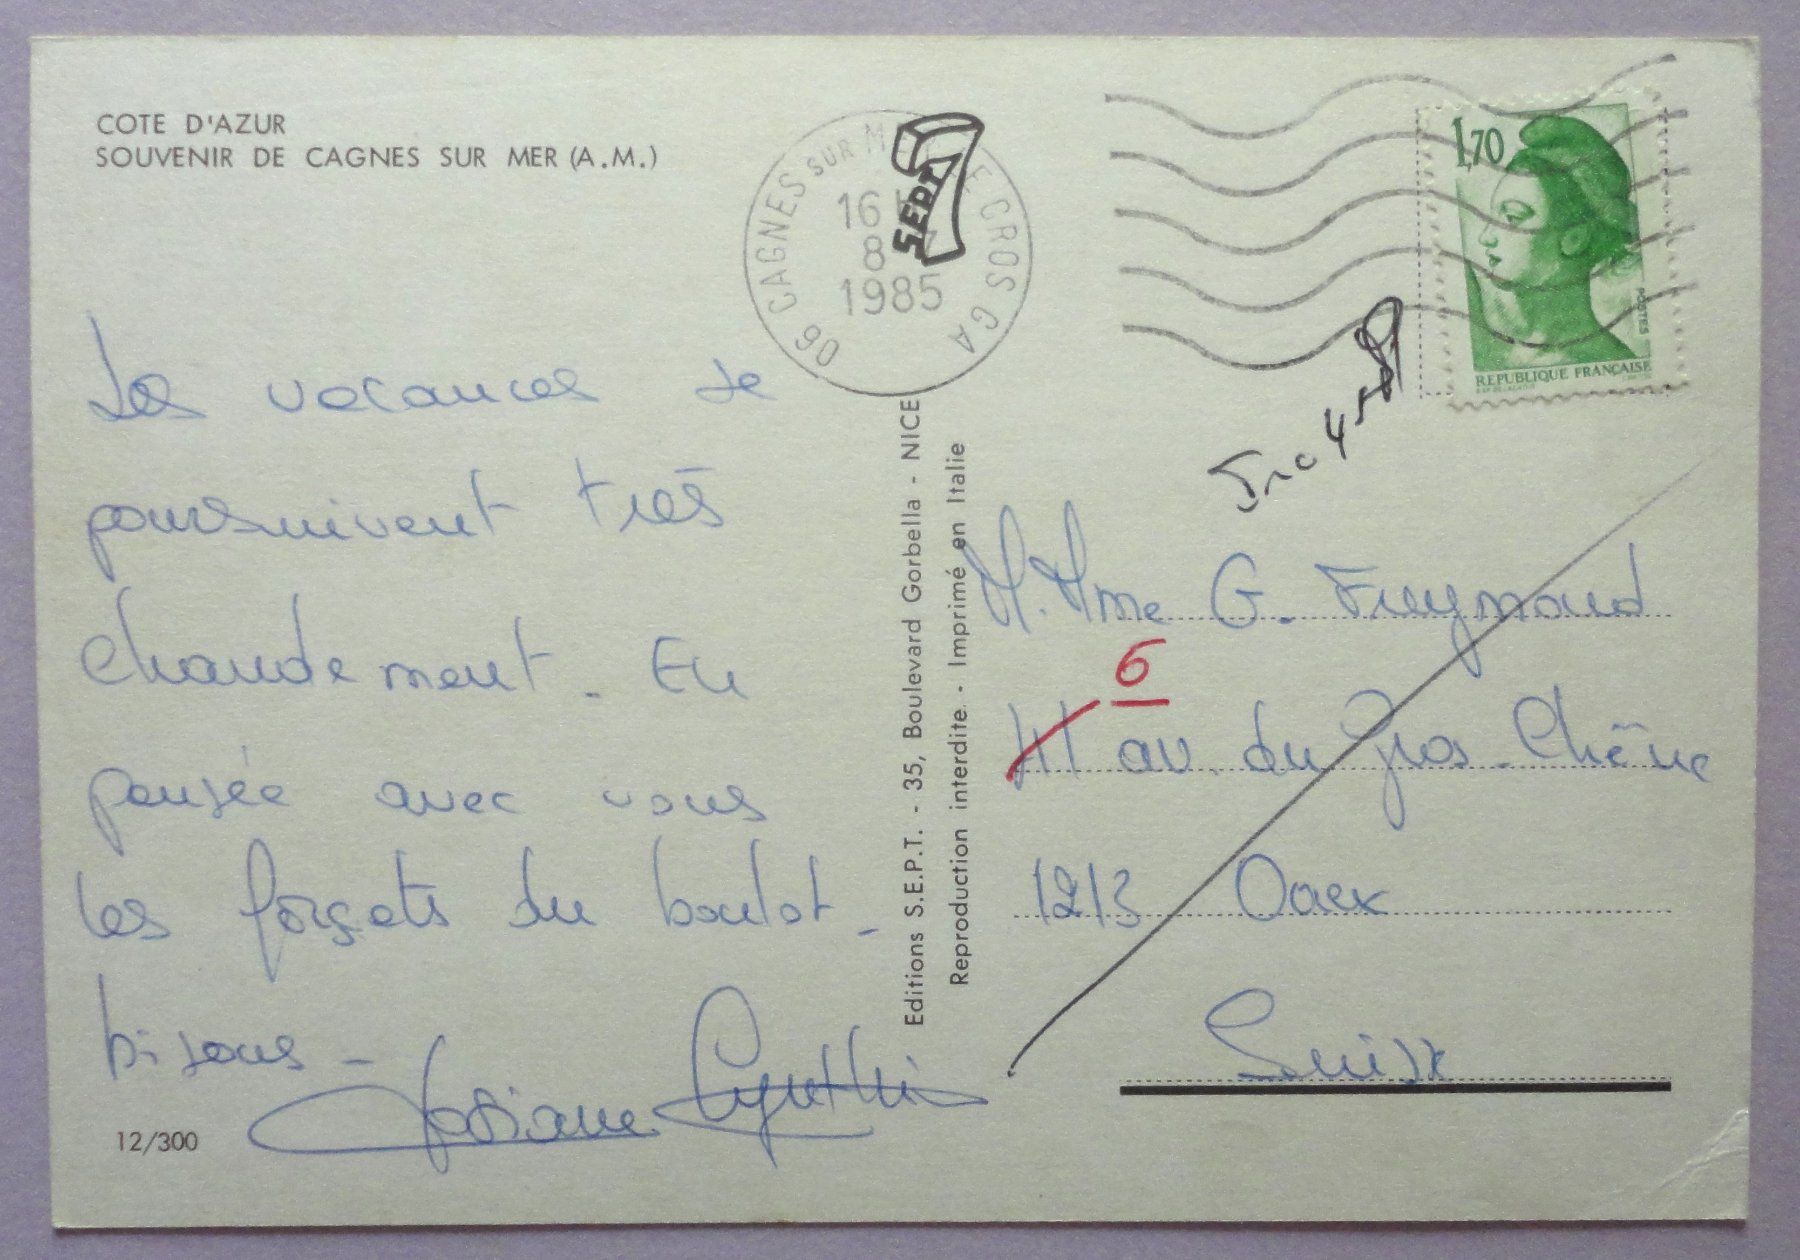 COTE D'AZUR
SOUVENIR DE CAGNES SUR MER (A.M.)
Les vacances se
poursuivent très
chaudement. En
pensée avec vous
les forçats du boulot.
bisous -
Josiane Cynthia
12/300
06 CAGNES SUR M CROS CA
16
8
1985
SEPT
Editions S.E.P.T. - 35, Boulevard Gorbella - NICE
Reproduction interdite. - Imprimé en Italie
1,70
POSTES
REPUBLIQUE FRANÇAISE
M. Mme G. Freymond
6
41 av. du Gros-Chêne
1213 Onex
Suisse